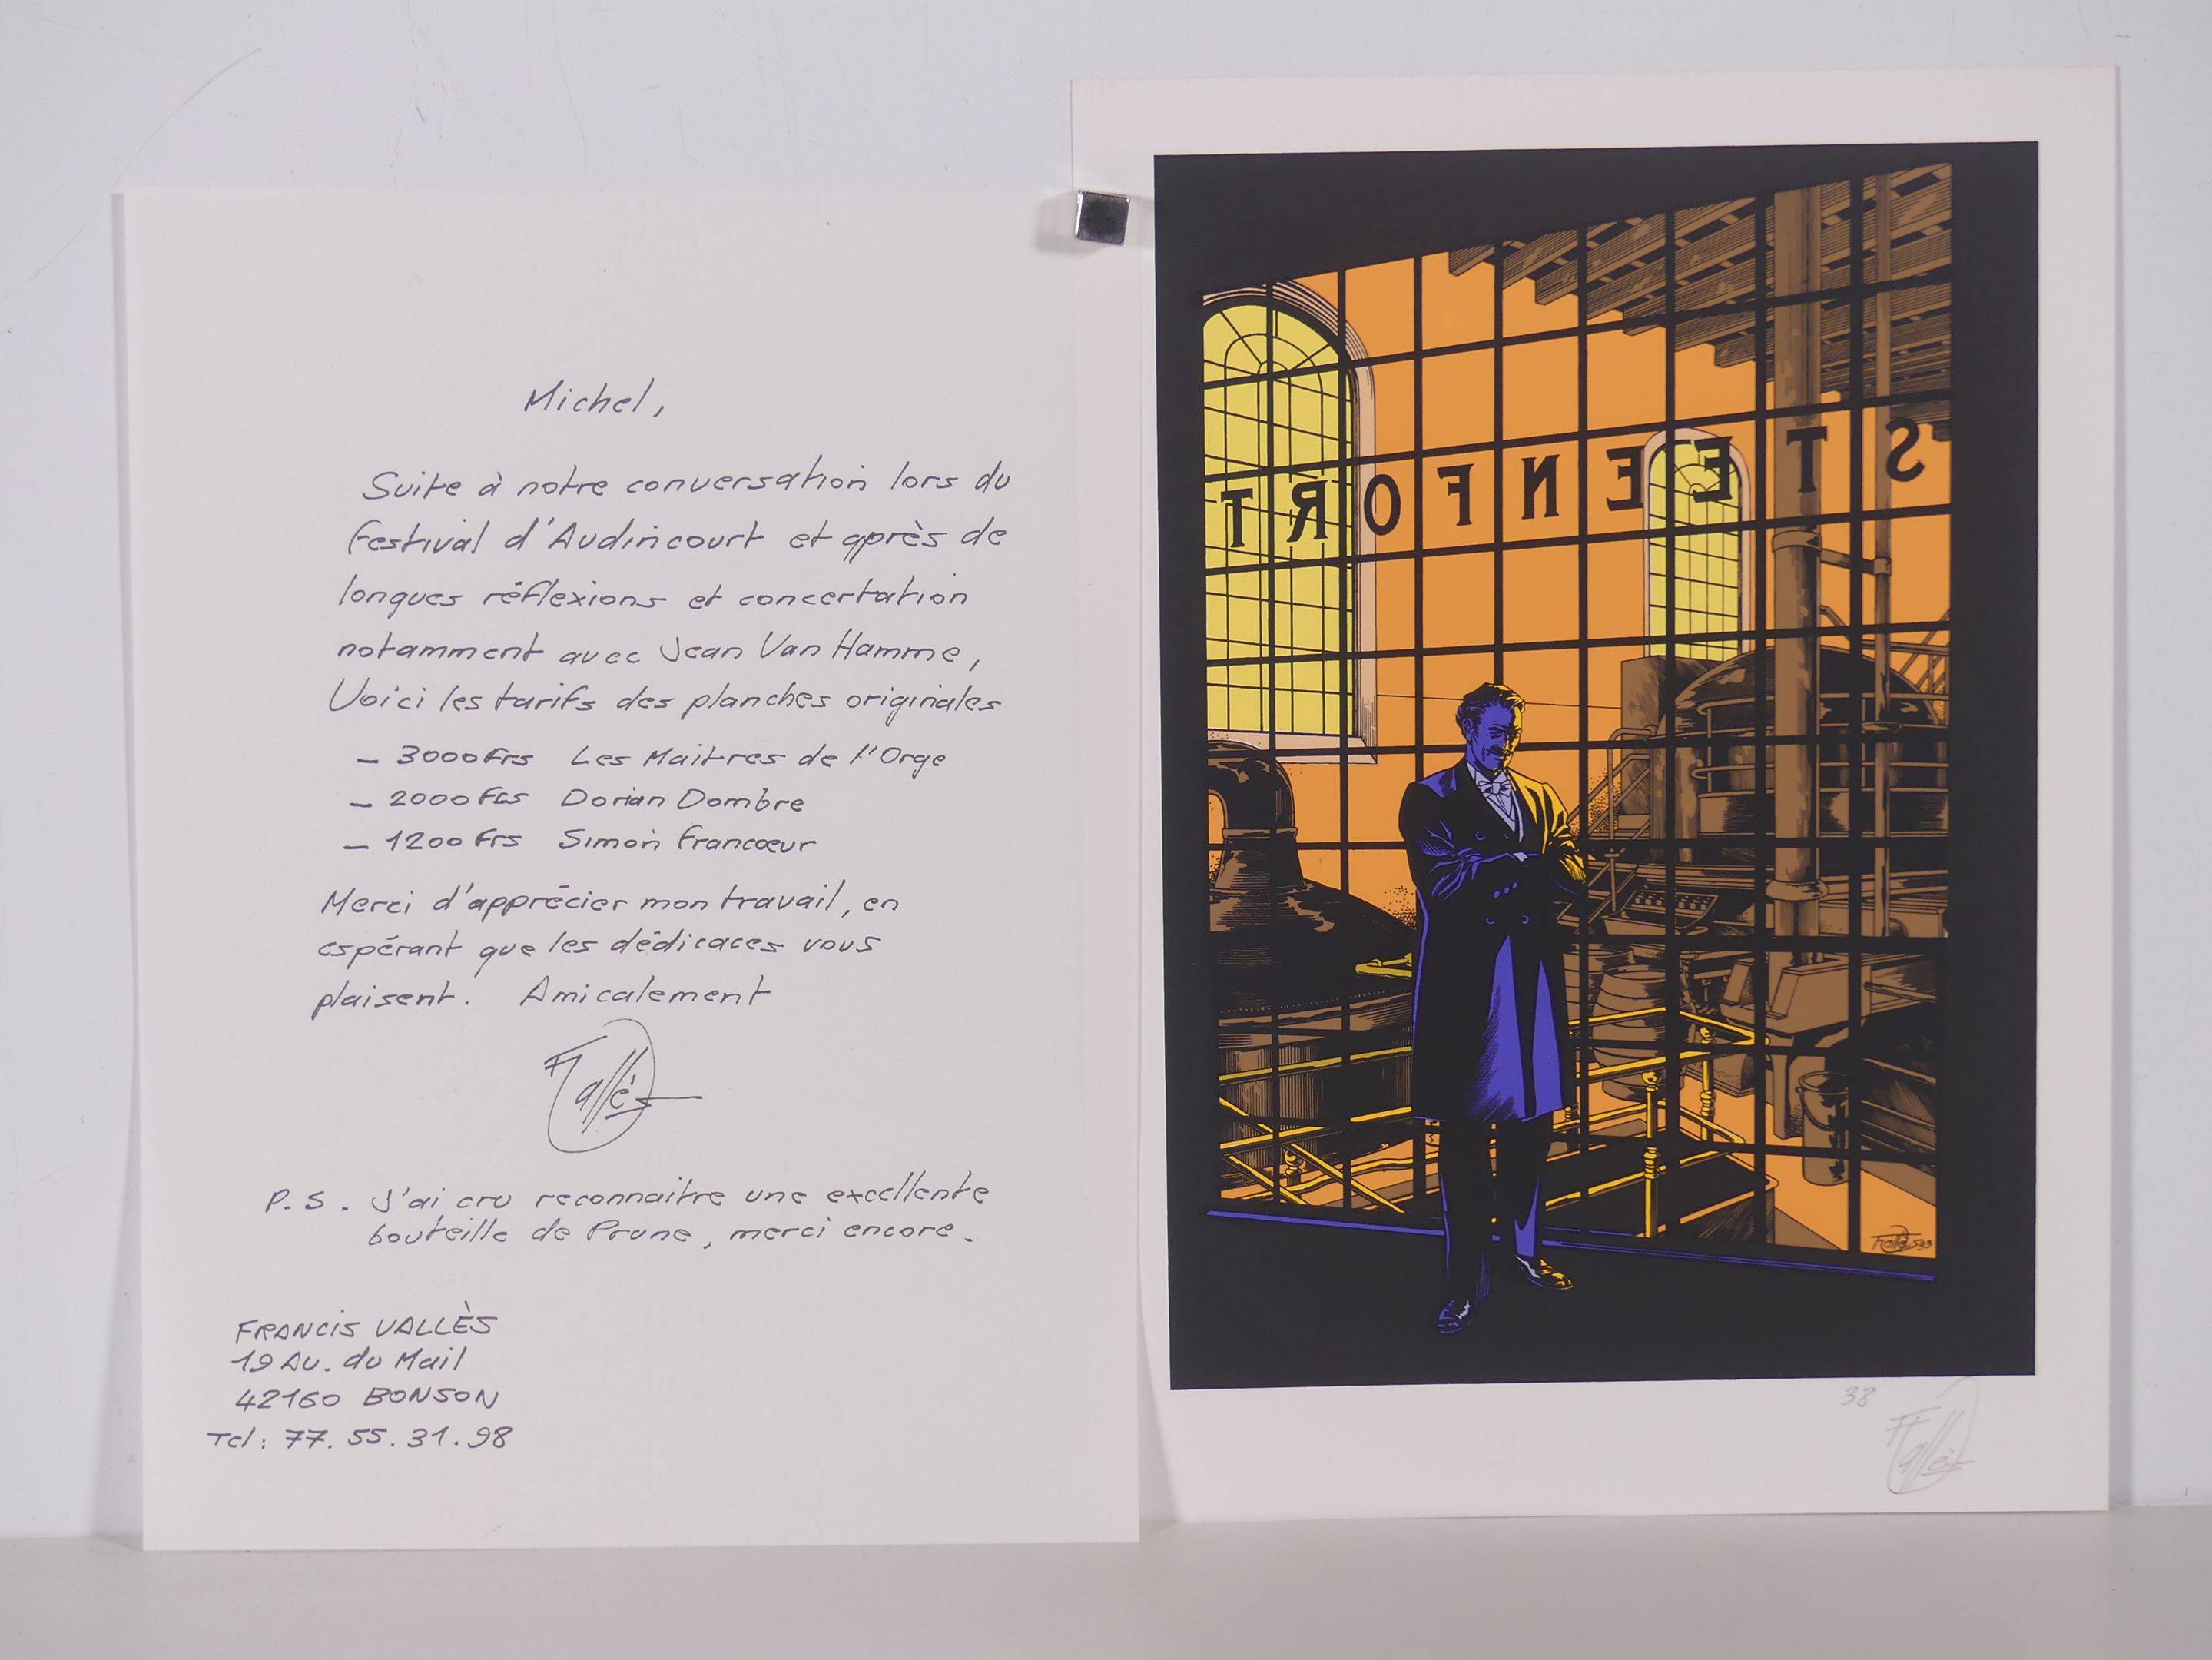 Michel,
Suite à notre conversation lors du
festival d'Audincourt et après de
longues réflexions et concertation
notamment avec Jean Van Hamme,
Voici les tarifs des planches originales
– 3000 Frs Les Maitres de l'Orge
– 2000 Frs Dorian Dombre
– 1200 Frs Simon Francœur
Merci d'apprécier mon travail, en
espérant que les dédicaces vous
plaisent. Amicalement
F Vallès
P.S. J'ai cru reconnaitre une excellente
bouteille de Prune, merci encore.
FRANCIS VALLÈS
19 Av. du Mail
42160 BONSON
Tel : 77.55.31.98
STEENFORT
F Vallès 93
38
F Vallès